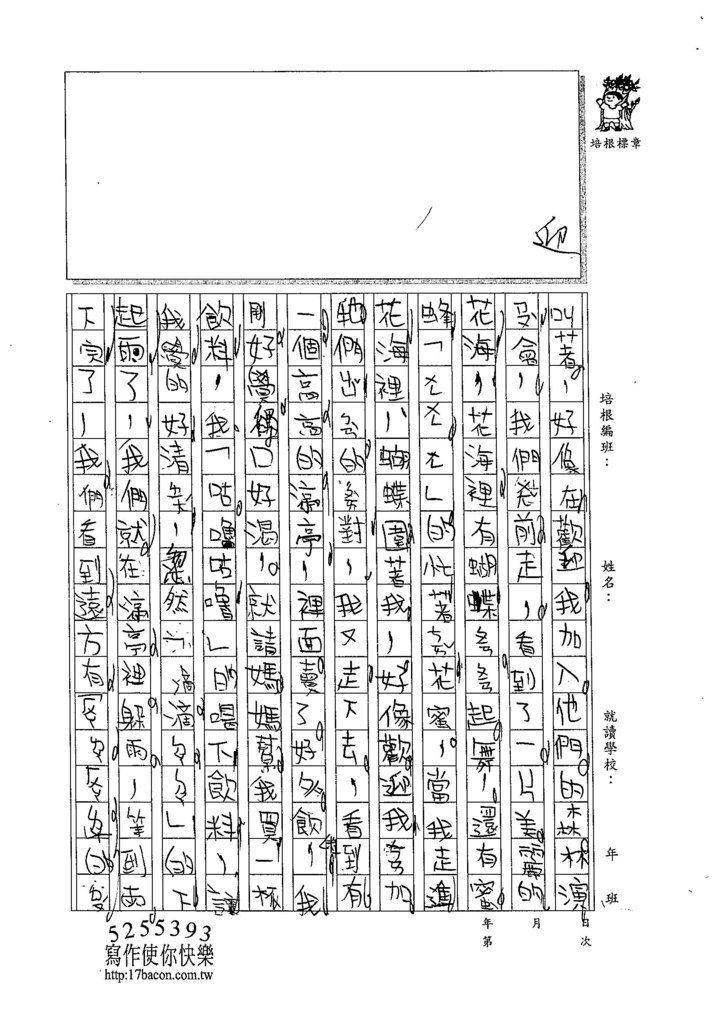 培根標章
迎
培根編班：
姓名：
就讀學校：
年 班
年 月 日
第 次
叫著，好像在歡迎我加入他們的森林演
奏會，我們往前走，看到了一片美麗的
花海，花海裡有蝴蝶翩翩起舞，還有蜜
蜂「ㄤㄤㄤ」的忙著採花蜜，當我走進
花海裡，蝴蝶圍著我，好像歡迎我參加
牠們的派對，我又走下去，看到有
一個高高的涼亭，裡面賣了好多飲料，我
剛好覺得口好渴，就請媽媽幫我買一杯
飲料，我「咕嚕咕嚕」的喝下飲料，讓
我覺的好清涼，忽然「滴滴答答」的下
起雨了，我們就在涼亭裡躲雨，等到雨
下完了，我們看到遠方有
5255393
寫作使你快樂
http:17bacon.com.tw